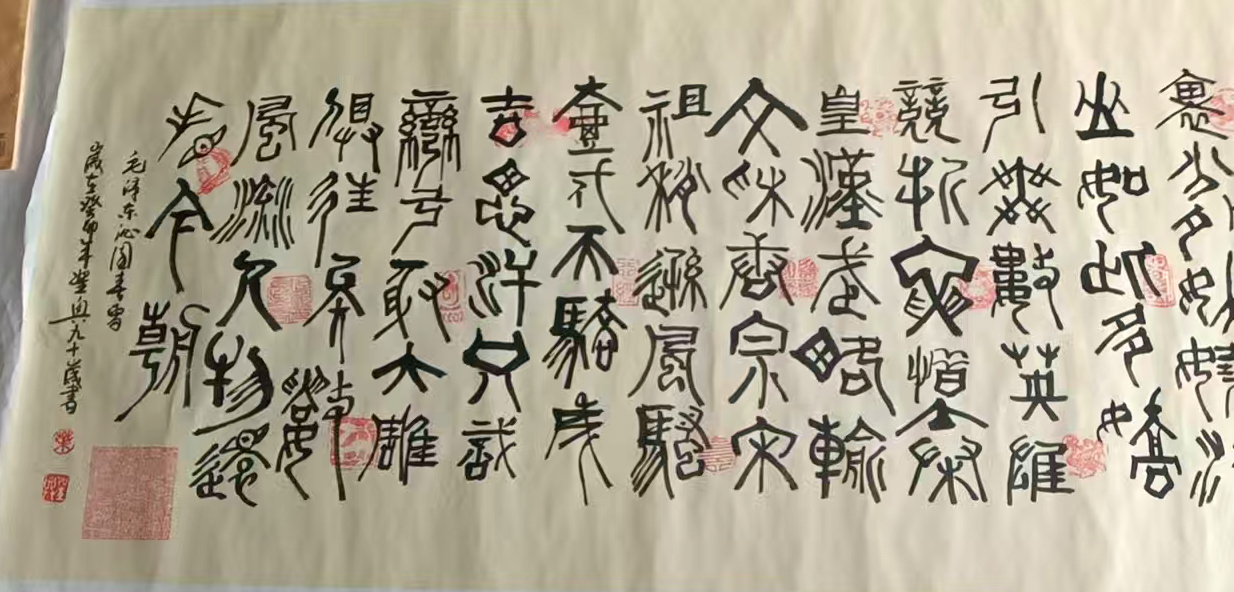 裹分外妖嬈江
山如此多嬌
引無數英雄
競折腰惜秦
皇漢武略輸
文采唐宗宋
祖稍遜風騷
一代天驕成
吉思汗只識
彎弓射大雕
俱往矣數
風流人物還
看今朝
毛泽东沁園春雪
歲在癸卯年九十歲書